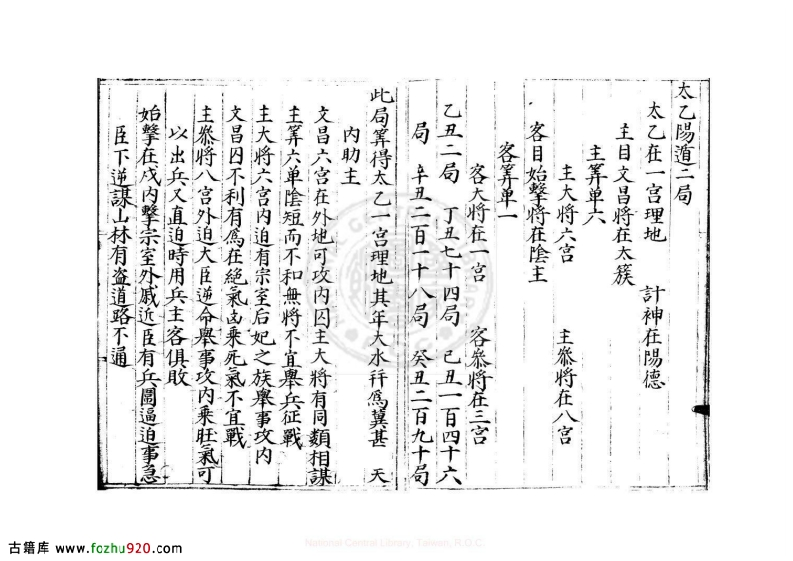 太乙陽遁二局
太乙在一宫理地　計神在陽德
主目文昌將在太簇
主筭单六
主大將六宫　主叅將在八宫
客目始擊將在陰主
客筭单一
客大將在一宫　客叅將在三宫
乙丑二局　丁丑七十四局　己丑一百四十六
局　辛丑二百一十八局　癸丑二百九十局
此局筭得太乙一宫理地其年大水幷爲冀甚　天
内助主
文昌六宫在外地可攻内囚主大將有同類相謀
主筭六单陰短而不和無將不宜舉兵征戰
主大將六宫内迫有宗室后妃之族舉事攻内
文昌囚不利有爲在絕氣凶乘死氣不宜戰
主叅將八宫外迫大臣逆命舉事攻内乘旺氣可
以出兵又直迫時用兵主客俱敗
始擊在戌内擊宗室外戚近臣有兵圖逼迫事急
臣下逆謀山林有盗道路不通
古籍库 www.fozhu920.com
National Central Library, Taiwan, R.O.C.